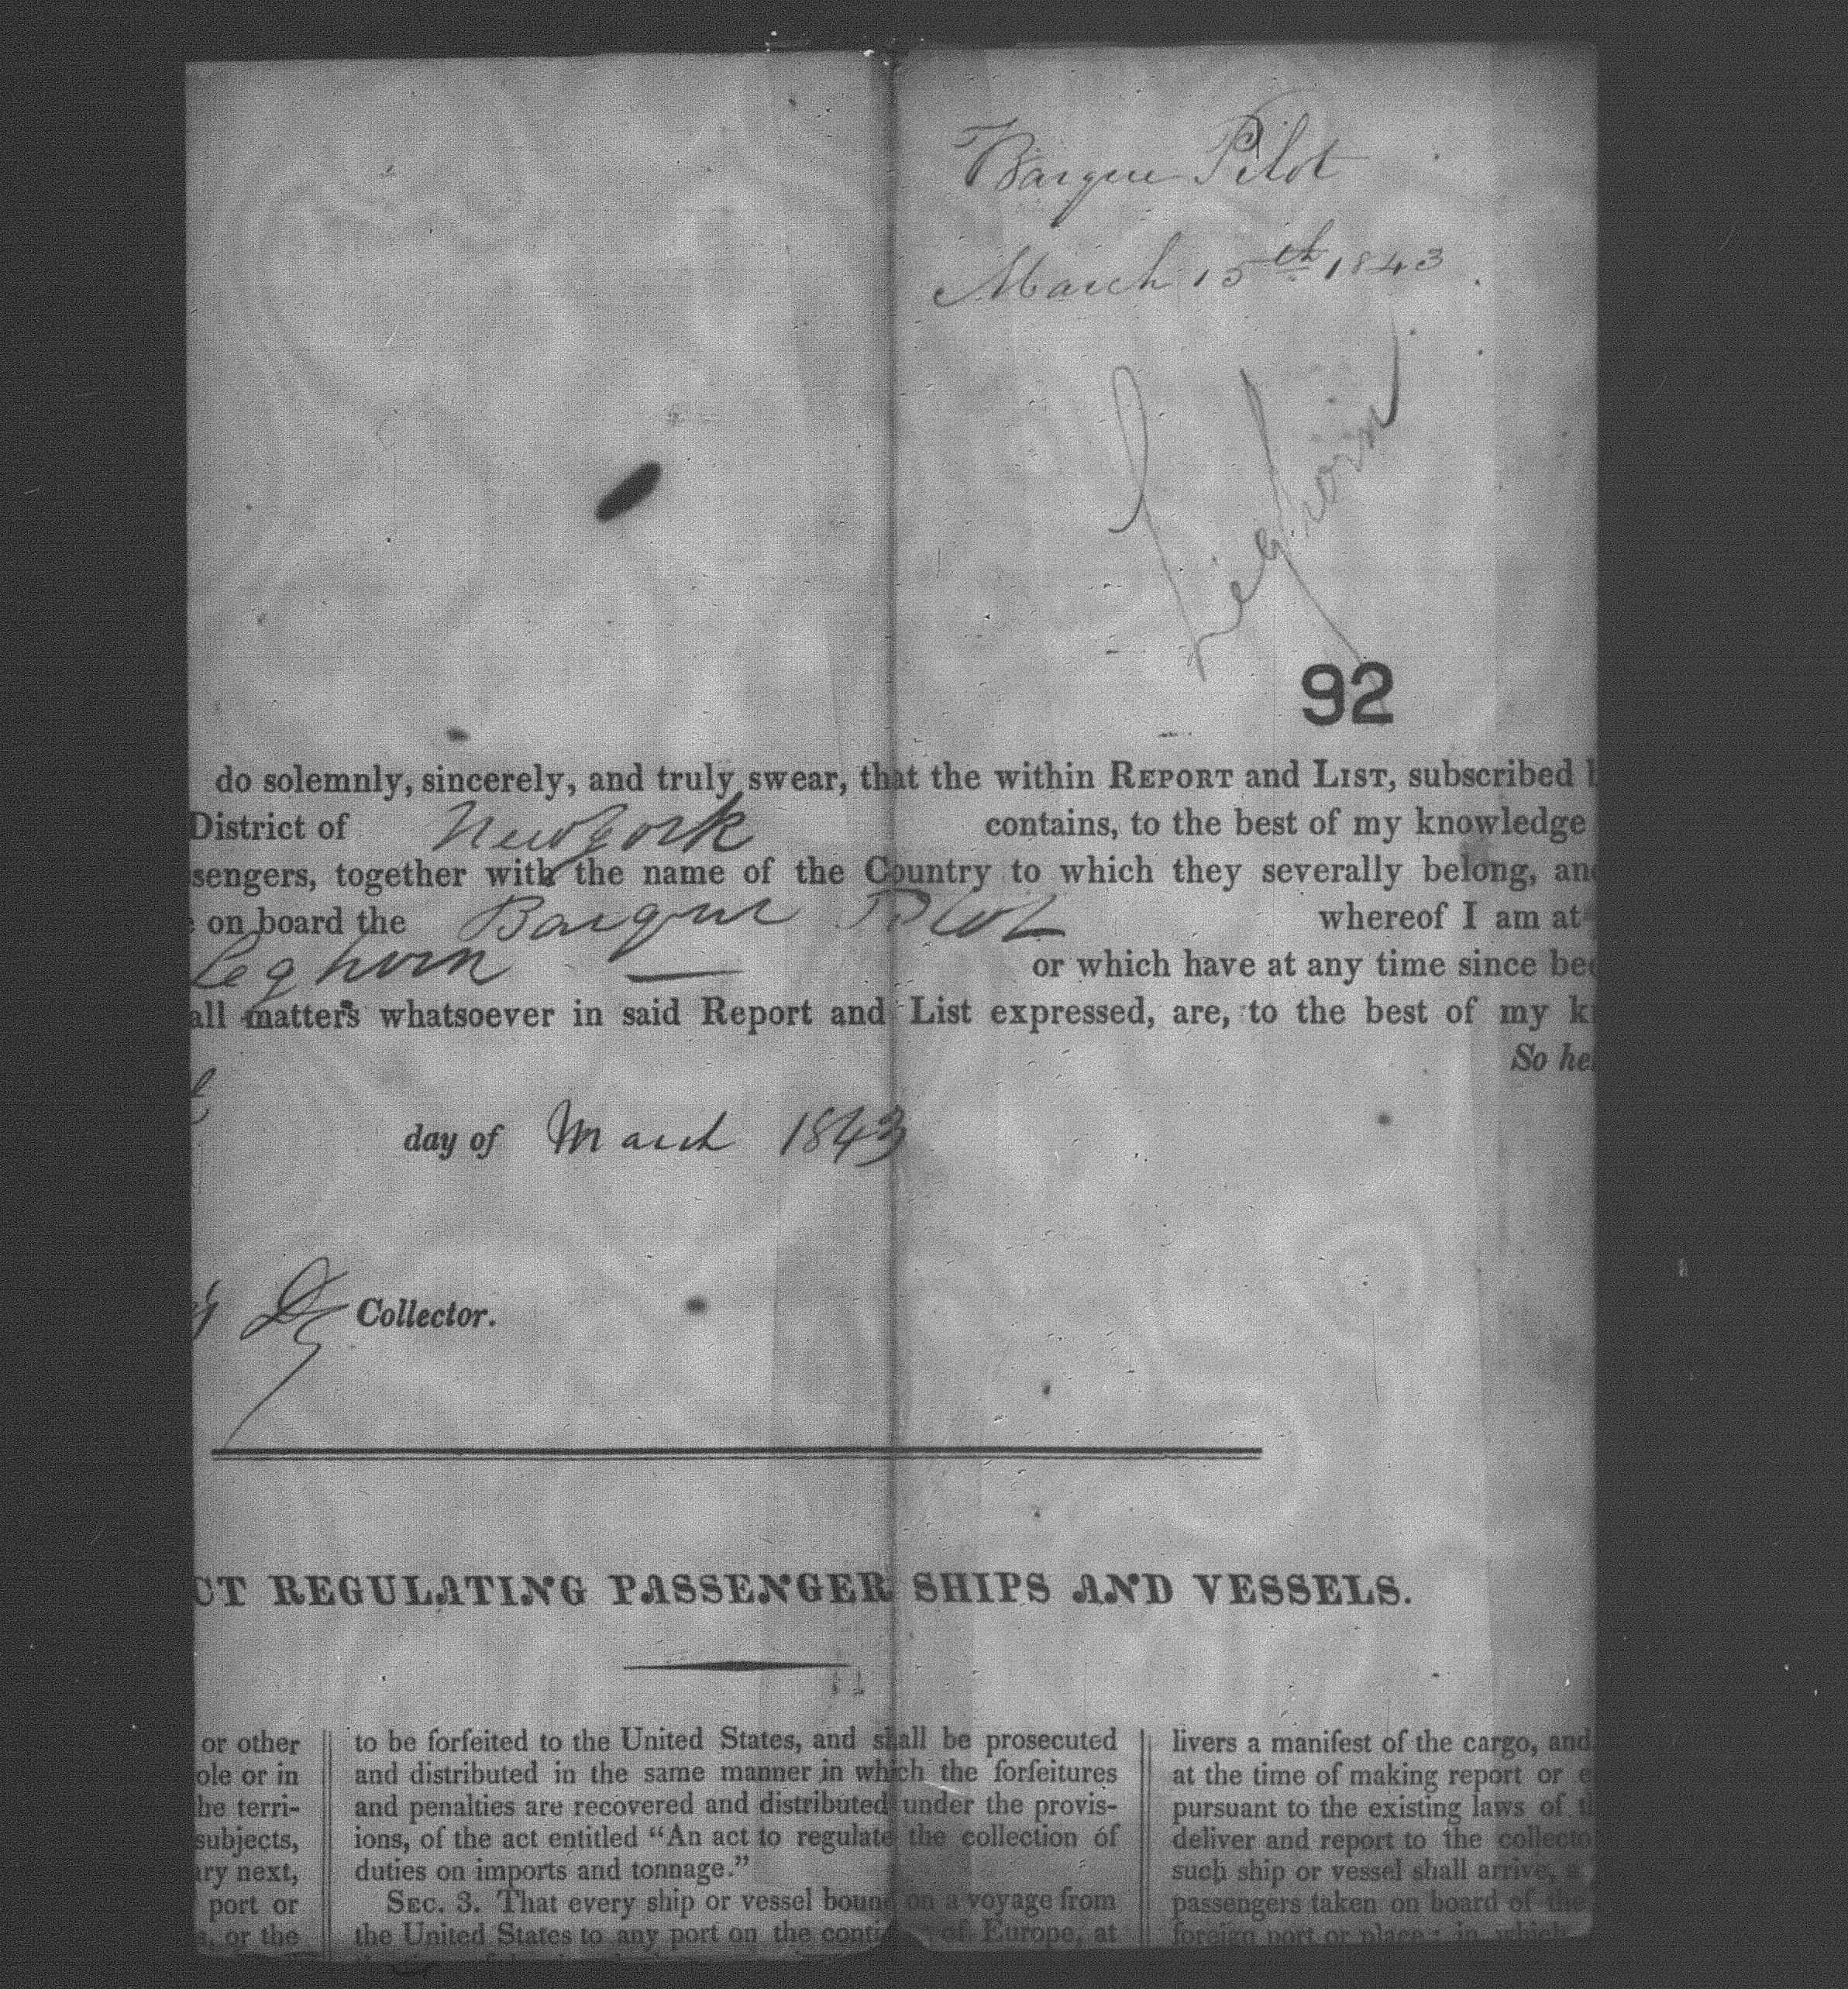 Barque Pilot
March 15th 1843
Leghorn
92
do solemnly, sincerely, and truly swear, that the within REPORT and LIST, subscribed
District of New York contains, to the best of my knowledge
sengers, together with the name of the Country to which they severally belong, and
on board the Barque Pilot whereof I am at
Leghorn — or which have at any time since bee
all matters whatsoever in said Report and List expressed, are, to the best of my k
So hel
day of March 1843
Collector.
CT REGULATING PASSENGER SHIPS AND VESSELS.
or other
ole or in
he terri-
subjects,
ary next,
port or
s, or the
to be forfeited to the United States, and shall be prosecuted
and distributed in the same manner in which the forfeitures
and penalties are recovered and distributed under the provis-
ions, of the act entitled “An act to regulate the collection of
duties on imports and tonnage.”
SEC. 3. That every ship or vessel bound on a voyage from
the United States to any port on the conti of Europe, at
livers a manifest of the cargo, and
at the time of making report or e
pursuant to the existing laws of t
deliver and report to the collecto
such ship or vessel shall arrive, a
passengers taken on board of the
foreign port or place; in which